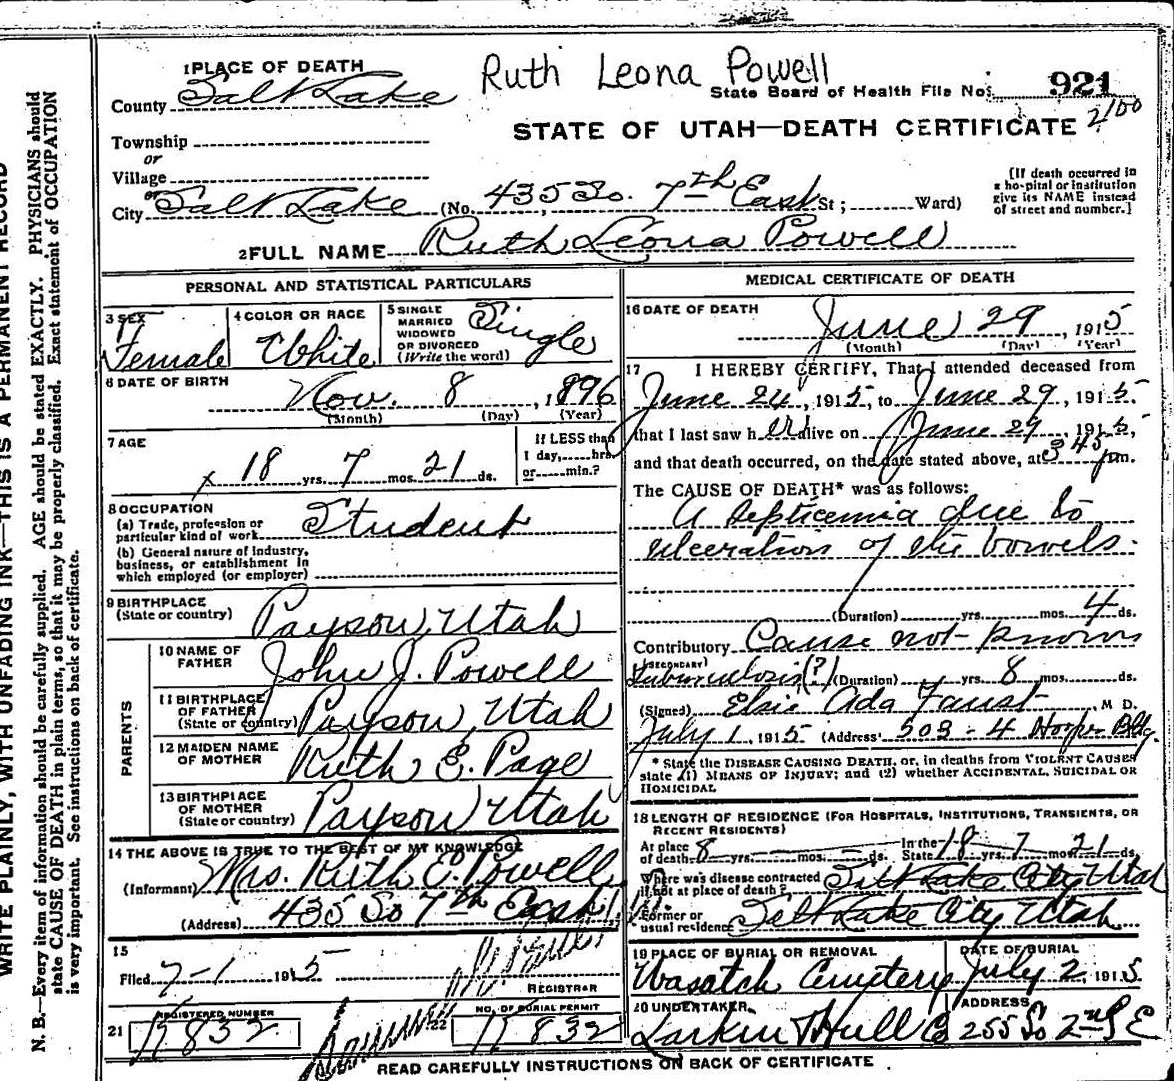 Ruth Leona Powell
1 PLACE OF DEATH
County Salt Lake
State Board of Health File No. 921
2100
STATE OF UTAH—DEATH CERTIFICATE
Township
or
Village
or
City Salt Lake (No. 435 So. 7th East St; Ward)
[If death occurred in
a hospital or institution
give its NAME instead
of street and number.]
2 FULL NAME Ruth Leona Powell
PERSONAL AND STATISTICAL PARTICULARS
3 SEX
Female
4 COLOR OR RACE
White
5 SINGLE
MARRIED
WIDOWED
OR DIVORCED
(Write the word)
Single
6 DATE OF BIRTH
Nov. 8, 1896
(Month) (Day) (Year)
7 AGE
18 yrs. 7 mos. 21 ds.
If LESS than
1 day,......hrs.
or......min.?
8 OCCUPATION
(a) Trade, profession or
particular kind of work Student
(b) General nature of industry,
business, or establishment in
which employed (or employer)
9 BIRTHPLACE
(State or country) Payson, Utah
PARENTS
10 NAME OF
FATHER John J. Powell
11 BIRTHPLACE
OF FATHER
(State or country) Payson, Utah
12 MAIDEN NAME
OF MOTHER Ruth E. Page
13 BIRTHPLACE
OF MOTHER
(State or country) Payson Utah
14 THE ABOVE IS TRUE TO THE BEST OF MY KNOWLEDGE
(Informant) Mrs. Ruth E. Powell
(Address) 435 So 7th East
15
Filed 7-1 1915
REGISTRAR
21 REGISTERED NUMBER
832
22 NO. OF BURIAL PERMIT
832
MEDICAL CERTIFICATE OF DEATH
16 DATE OF DEATH
June 29, 1915
(Month) (Day) (Year)
17 I HEREBY CERTIFY, That I attended deceased from
June 24, 1915, to June 29, 1915.
that I last saw her alive on June 29, 1915,
and that death occurred, on the date stated above, at 3 45 pm.
The CAUSE OF DEATH* was as follows:
A Septicemia due to
ulceration of the bowels.
(Duration) yrs. mos. 4 ds.
Contributory Cause not known
(SECONDARY)
Tuberculosis (?) (Duration) yrs. 8 mos. ds.
(Signed) Elsie Ada Faust M D.
July 1, 1915 (Address) 503-4 Hooper Bldg.
* State the DISEASE CAUSING DEATH, or, in deaths from VIOLENT CAUSES
state (1) MEANS OF INJURY; and (2) whether ACCIDENTAL, SUICIDAL OR
HOMICIDAL.
18 LENGTH OF RESIDENCE (FOR HOSPITALS, INSTITUTIONS, TRANSIENTS, OR
RECENT RESIDENTS)
At place
of death 8 yrs. — mos. — ds. In the
State 18 yrs. 7 mos. 21 ds.
Where was disease contracted
if not at place of death? Salt Lake City Utah
Former or
usual residence Salt Lake City Utah
19 PLACE OF BURIAL OR REMOVAL
Wasatch Cemetery
DATE OF BURIAL
July 2, 1915
20 UNDERTAKER
Larkin Hull Co
ADDRESS
255 So 2nd E
READ CAREFULLY INSTRUCTIONS ON BACK OF CERTIFICATE
WRITE PLAINLY, WITH UNFADING INK—THIS IS A PERMANENT RECORD
N. B.—Every item of information should be carefully supplied. AGE should be stated EXACTLY. PHYSICIANS should
state CAUSE OF DEATH in plain terms, so that it may be properly classified. Exact statement of OCCUPATION
is very important. See instructions on back of certificate.